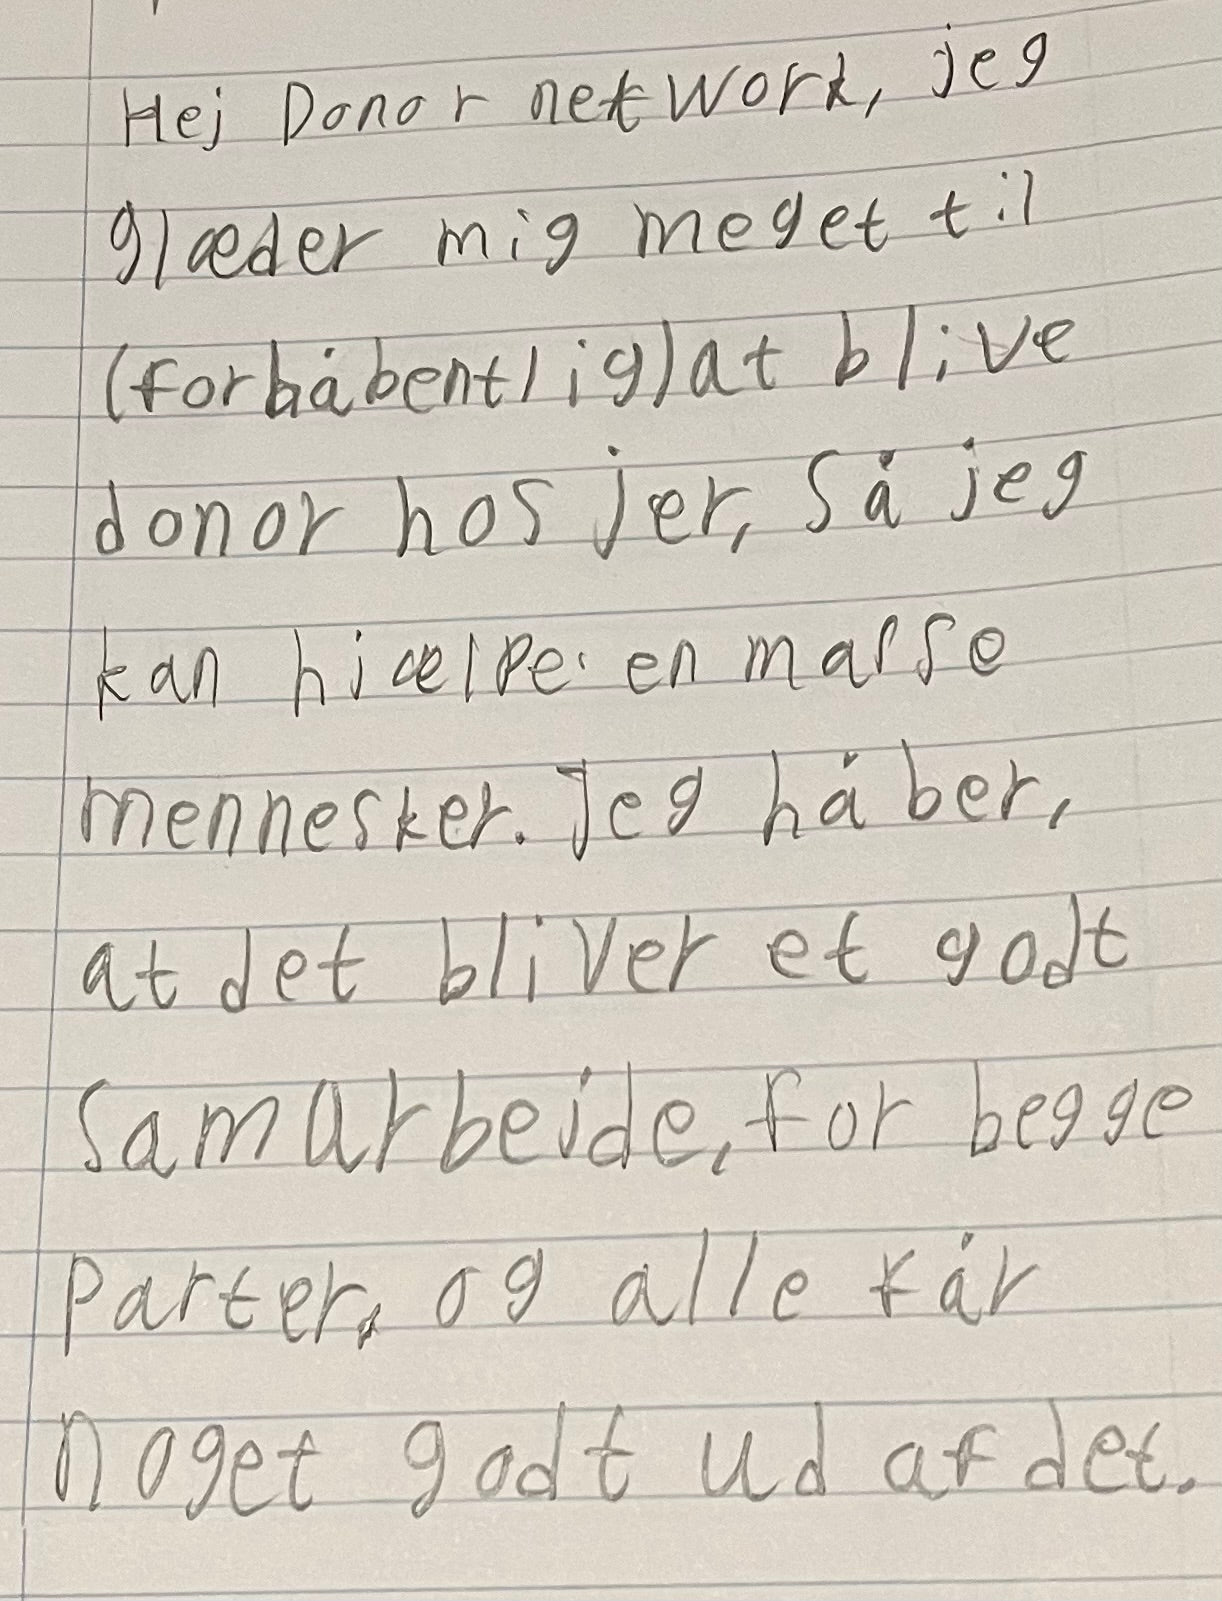 Hej Donor network, jeg
glæder mig meget til
(forhåbentlig) at blive
donor hos jer, så jeg
kan hjælpe en masse
mennesker. Jeg håber,
at det bliver et godt
samarbejde, for begge
parter, og alle får
noget godt ud af det.